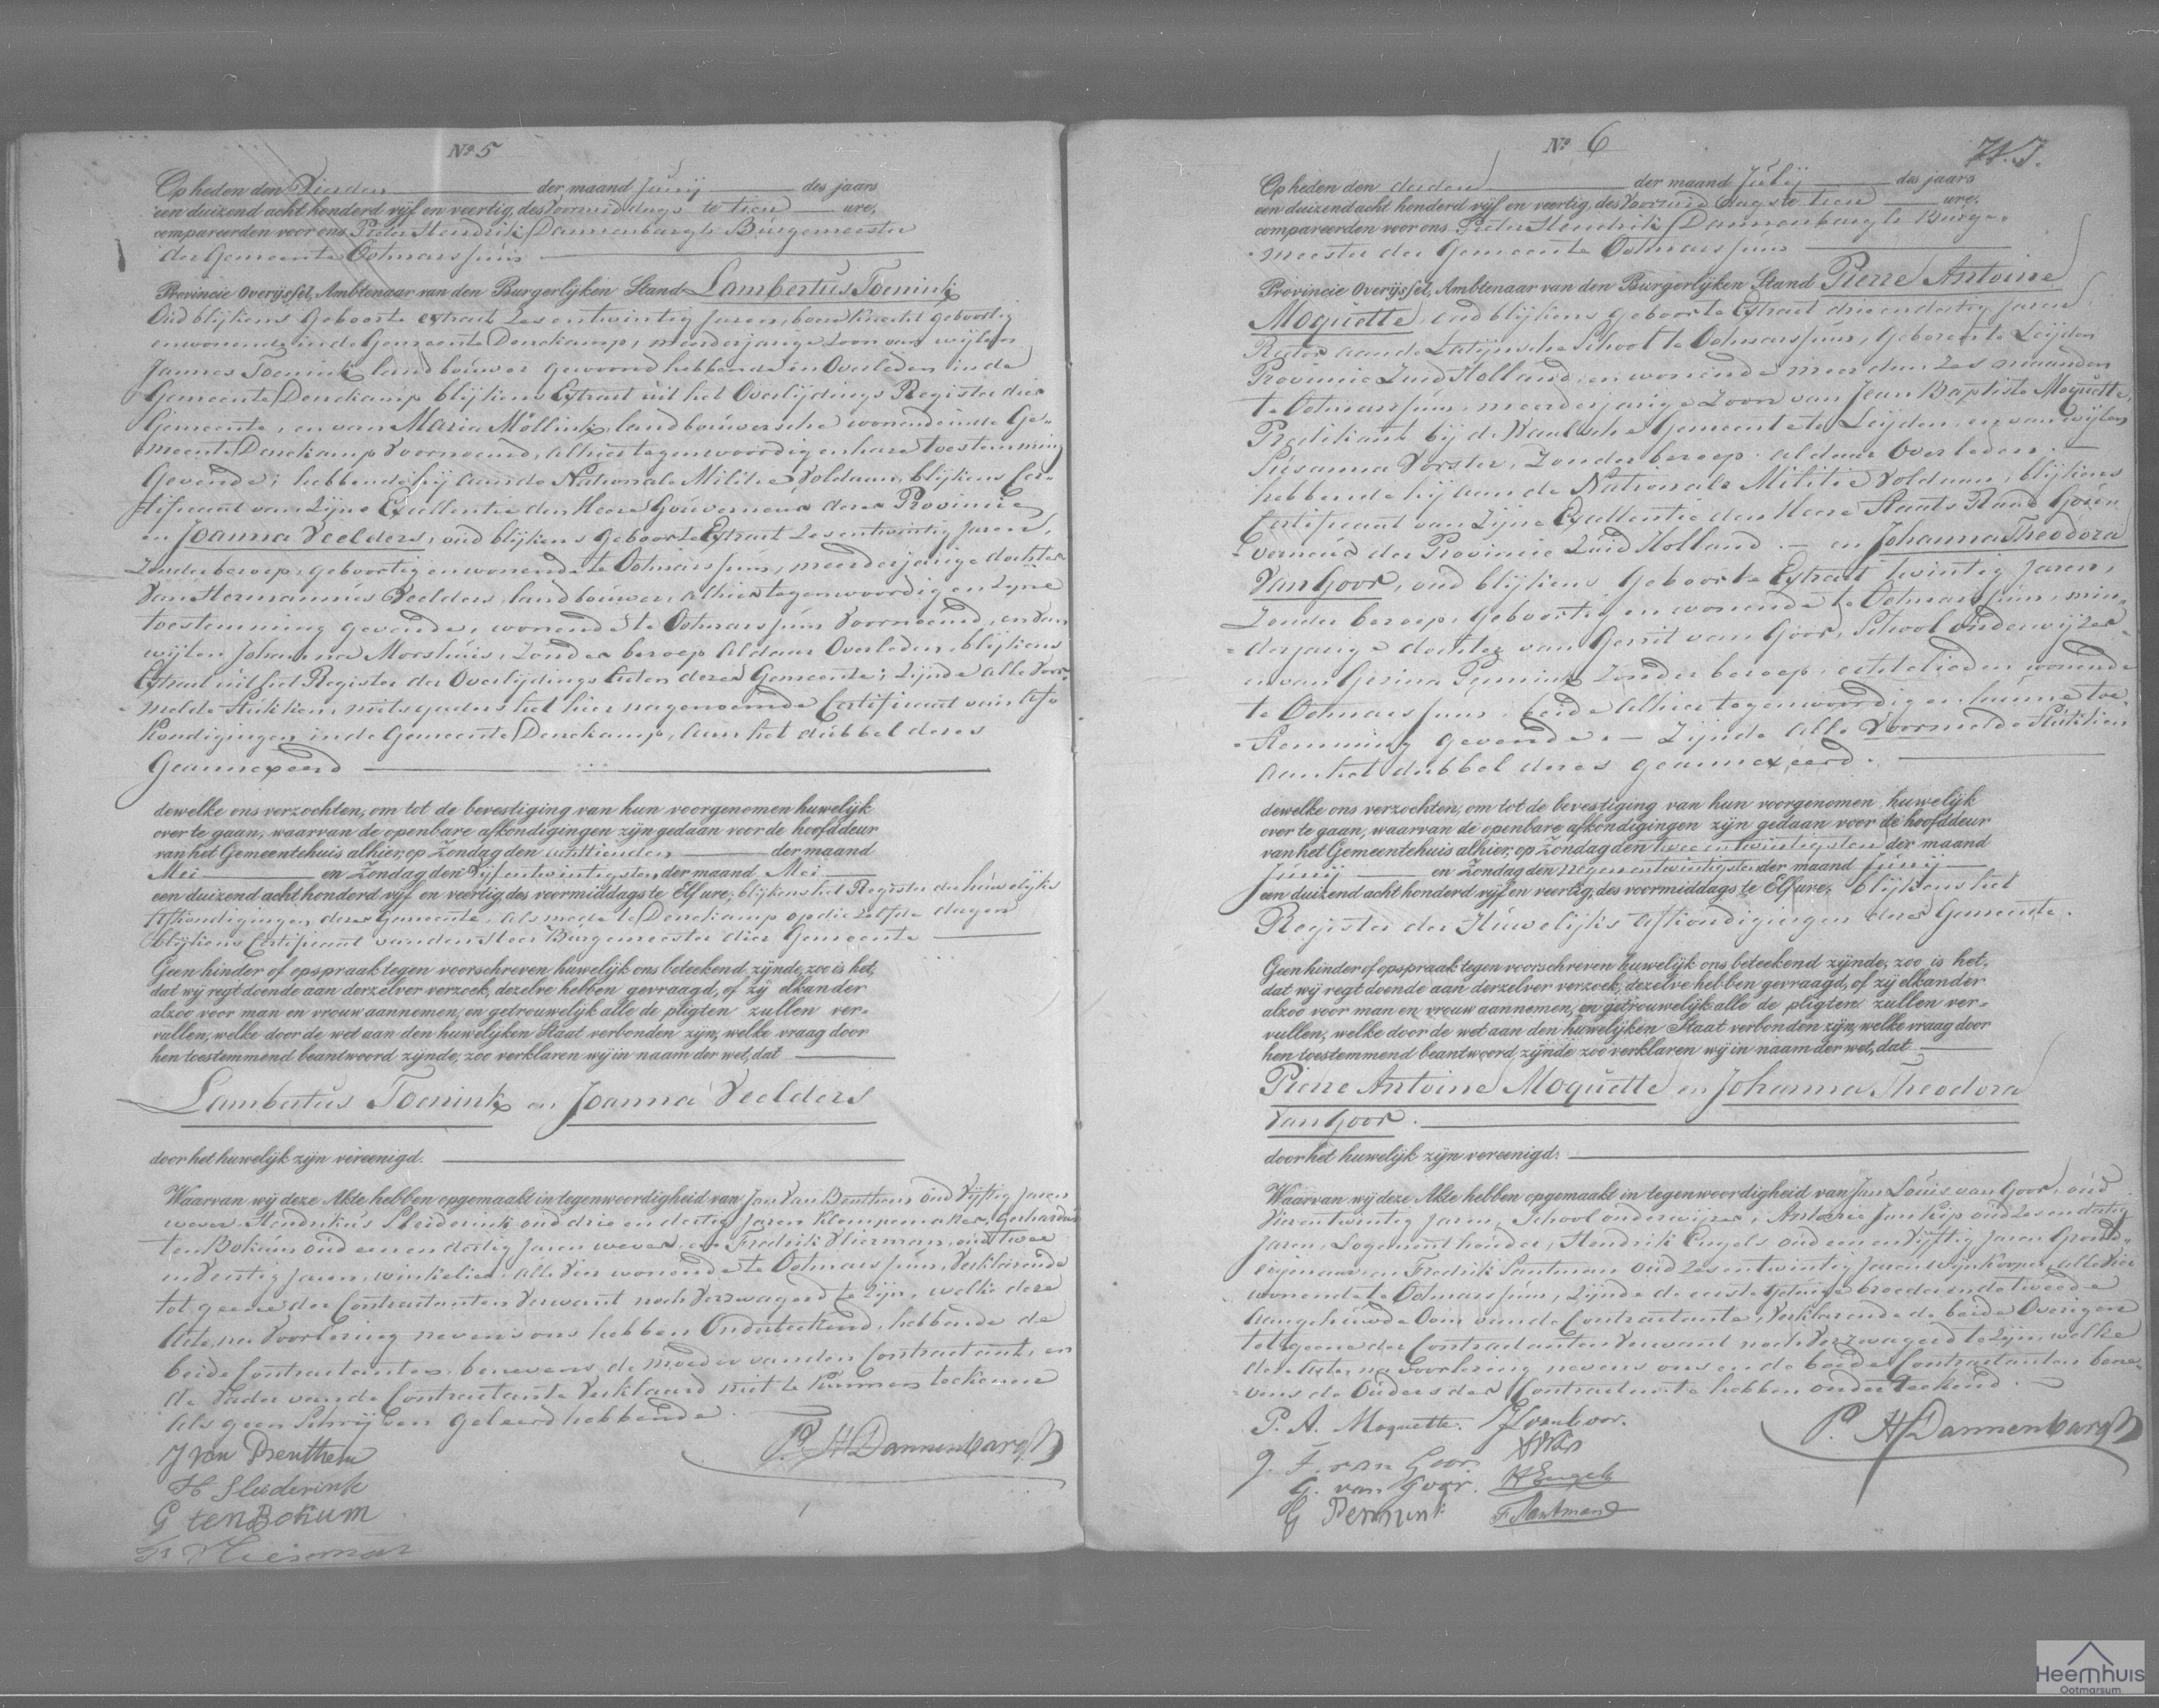 Nº 5
Op heden den Vierden der maand Junij des jaars
een duizend acht honderd vijf en veertig, des Voormiddags te tien ure,
compareerden voor ons Pieter Hendrik Dannenbargh Burgemeester
der Gemeente Ootmarssum
Provincie Overijssel, Ambtenaar van den Burgerlijken Stand Lambertus Toenink
Oud blijkens Geboorte extract Zes entwintig Jaren, boere Knecht geboortig
en wonende in de Gemeente Denekamp, meerderjarige Zoon van wijlen
Jannes Toenink landbouwer gewoond hebbende en Overleden in de
Gemeente Denekamp blijkens Extract uit het Overlijdings Register dier
Gemeente, en van Maria Möllink, landbouwersche wonende in de Ge-
meente Denekamp Voornoemd, alhier tegenwoordig en hare toestemming
Gevende; hebbende hij aan de Nationale Militie Voldaan, blijkens Cer-
tificaat van Zijne Excellentie den Heere Gouverneur dezer Provincie
en Joanna Veelders, oud blijkens Geboorte Extract Zes entwintig Jaren,
Zonder beroep, geboortig en wonende te Ootmarssum, meerderjarige dochter
Van Hermannus Veelders, landbouwer, alhier tegenwoordig en zijne
toestemming gevende, wonende te Ootmarssum Voornoemd, en van
wijlen Johanna Morshuis, Zonder beroep Aldaar Overleden, blijkens
Extract uit het Register der Overlijdings Acten dezer Gemeente; Zijnde alle Voor-
melde Stukken, mitsgaders het hier nagenoemde Certificaat van Af-
kondigingen in de Gemeente Denekamp, aan het dubbel dezes
Geannexeerd
dewelke ons verzochten, om tot de bevestiging van hun voorgenomen huwelijk
over te gaan, waarvan de openbare afkondigingen zijn gedaan voor de hoofddeur
van het Gemeentehuis alhier, op Zondag den achttienden der maand
Mei en Zondag den Vijfentwintigsten der maand Mei
een duizend acht honderd vijf en veertig, des voormiddags te Elf ure, blijkens het Register der huwelijks
Afkondigingen dezer Gemeente, als mede te Denekamp op die zelfde dagen
blijkens Certificaat van den Heer Burgemeester dier Gemeente
Geen hinder of opspraak tegen voorschreven huwelijk ons beteekend zijnde, zoo is het,
dat wij regt doende aan derzelver verzoek, dezelve hebben gevraagd, of zij elkander
alzoo voor man en vrouw aannemen, en getrouwelijk alle de pligten zullen ver-
vullen, welke door de wet aan den huwelijken Staat verbonden zijn, welke vraag door
hen toestemmend beantwoord zijnde, zoo verklaren wij in naam der wet, dat
Lambertus Toenink en Joanna Veelders
door het huwelijk zijn vereenigd.
Waarvan wij deze Akte hebben opgemaakt in tegenwoordigheid van Jan Van Benthem oud Vijftig Jaren
wever Hendrikus Sleiderink oud drie en dertig Jaren Klompemaker, Gerhardus
ten Bokum oud een en dertig Jaren wever, en Fredrik Vlierman, oud twee
en Veertig Jaren, winkelier, alle Vier wonende te Ootmarssum, Verklarende
tot geene der Contractanten Verwant noch Verzwagerd te zijn, welke deze
Acte na Voorlezing nevens ons hebben Onderteekend, hebbende de
beide Contractanten, benevens de moeder van den Contractant, en
de Vader van de Contractante Verklaard niet te kunnen teekenen
Als geen Schrijven Geleerd hebbende.
J van Benthem
P. H Dannenbargh
H Sleiderink
G ten Bokum
Fr Vlierman
Nº 6
Op heden den derden der maand Julij des jaars
een duizend acht honderd vijf en veertig, des Voormiddags te tien ure,
compareerden voor ons Pieter Hendrik Dannenbargh Burge-
meester der Gemeente Ootmarssum
Provincie Overijssel, Ambtenaar van den Burgerlijken Stand Pierre Antoine
Moquette, oud blijkens geboorte Extract drie en dertig Jaren
Rector aan de Latijnsche School te Ootmarssum, Geboren te Leijden
Provincie Zuid Holland, en wonende meer dan Zes maanden
te Ootmarssum, meerderjarige Zoon van Jean Baptiste Moquette,
Predikant bij de Waalsche Gemeente te Leijden, en van wijlen
Susanna Vorster, Zonder beroep aldaar Overleden.
hebbende hij aan de Nationale Militie Voldaan, blijkens
Certificaat van Zijne Excellentie den Heere Staats Raad Gou-
verneur der Provincie Zuid Holland. — en Johanna Theodora
Van Goor, oud blijkens Geboorte Extract twintig Jaren,
Zonder beroep, Geboortig en wonende te Ootmarssum, min-
derjarige dochter van Gerrit van Goor, School onderwijzer
en van Gerina Pennink Zonder beroep, echtelieden wonende
te Ootmarssum, beide alhier tegenwoordig en hunne toe-
stemming gevende. — Zijnde alle Voormelde Stukken
aan het dubbel dezes geannexeerd.
dewelke ons verzochten, om tot de bevestiging van hun voorgenomen huwelijk
over te gaan, waarvan de openbare afkondigingen zijn gedaan voor de hoofddeur
van het Gemeentehuis alhier, op Zondag den twee entwintigsten der maand
Junij en Zondag den negen entwintigsten der maand Junij
een duizend acht honderd vijf en veertig, des voormiddags te Elf ure, blijkens het
Register der Huwelijks Afkondigingen dezer Gemeente.
Geen hinder of opspraak tegen voorschreven huwelijk ons beteekend zijnde, zoo is het,
dat wij regt doende aan derzelver verzoek, dezelve hebben gevraagd, of zij elkander
alzoo voor man en vrouw aannemen, en getrouwelijk alle de pligten zullen ver-
vullen, welke door de wet aan den huwelijken Staat verbonden zijn, welke vraag door
hen toestemmend beantwoord zijnde zoo verklaren wij in naam der wet, dat
Pierre Antoine Moquette en Johanna Theodora
Van Goor.
door het huwelijk zijn vereenigd.
Waarvan wij deze Akte hebben opgemaakt in tegenwoordigheid van Jan Louis van Goor, oud
Vierentwintig Jaren, School onderwijzer, Antonie Jan Kip oud Zes en dertig
Jaren, Logement houder, Hendrik Engels oud een en Vijftig Jaren Grond-
eigenaar en Fredrik Santman oud Zes entwintig Jaren Wijnkooper, alle Vier
wonende te Ootmarssum, Zijnde de eerste Getuige broeder en de tweede
Aangehuwde Oom van de Contractante, Verklarende de beide Overigen
tot geene der Contractanten Verwant noch Verzwagerd te zijn, welke
deze Acte na Voorlezing nevens ons en de beide Contractanten bene-
vens de Ouders der Contractante hebben onderteekend.
P. A. Moquette. JL van Goor.
P. H Dannenbargh
J. T. van Goor
G. van Goor. H Engels
G Pennink F Santman
Heemhuis
Ootmarsum